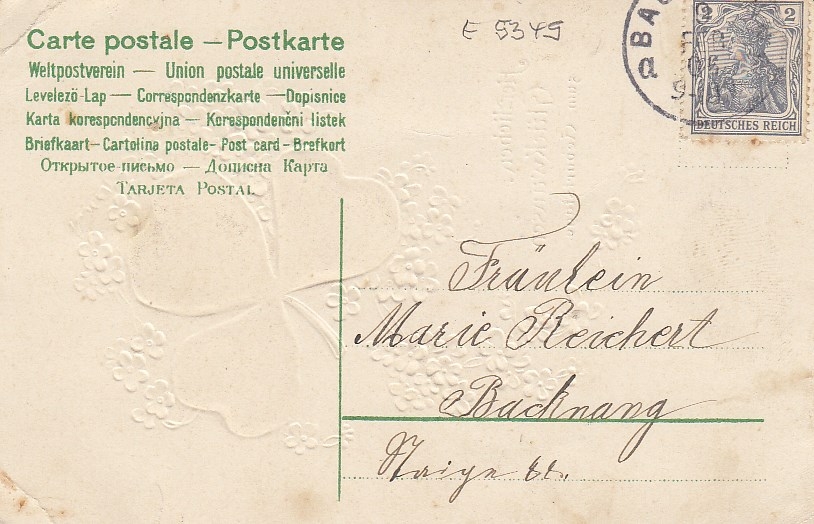 E 5349
Carte postale — Postkarte
Weltpostverein — Union postale universelle
Levelező-Lap — Correspondenzkarte — Dopisnice
Karta korespondencyjna — Korespondenční listek
Briefkaart — Cartolina postale - Post card - Brefkort
Открытое-письмо — Дописна Карта
TARJETA POSTAL
2 2
DEUTSCHES REICH
BAC
Fräulein
Marie Reichert
Backnang
Staige